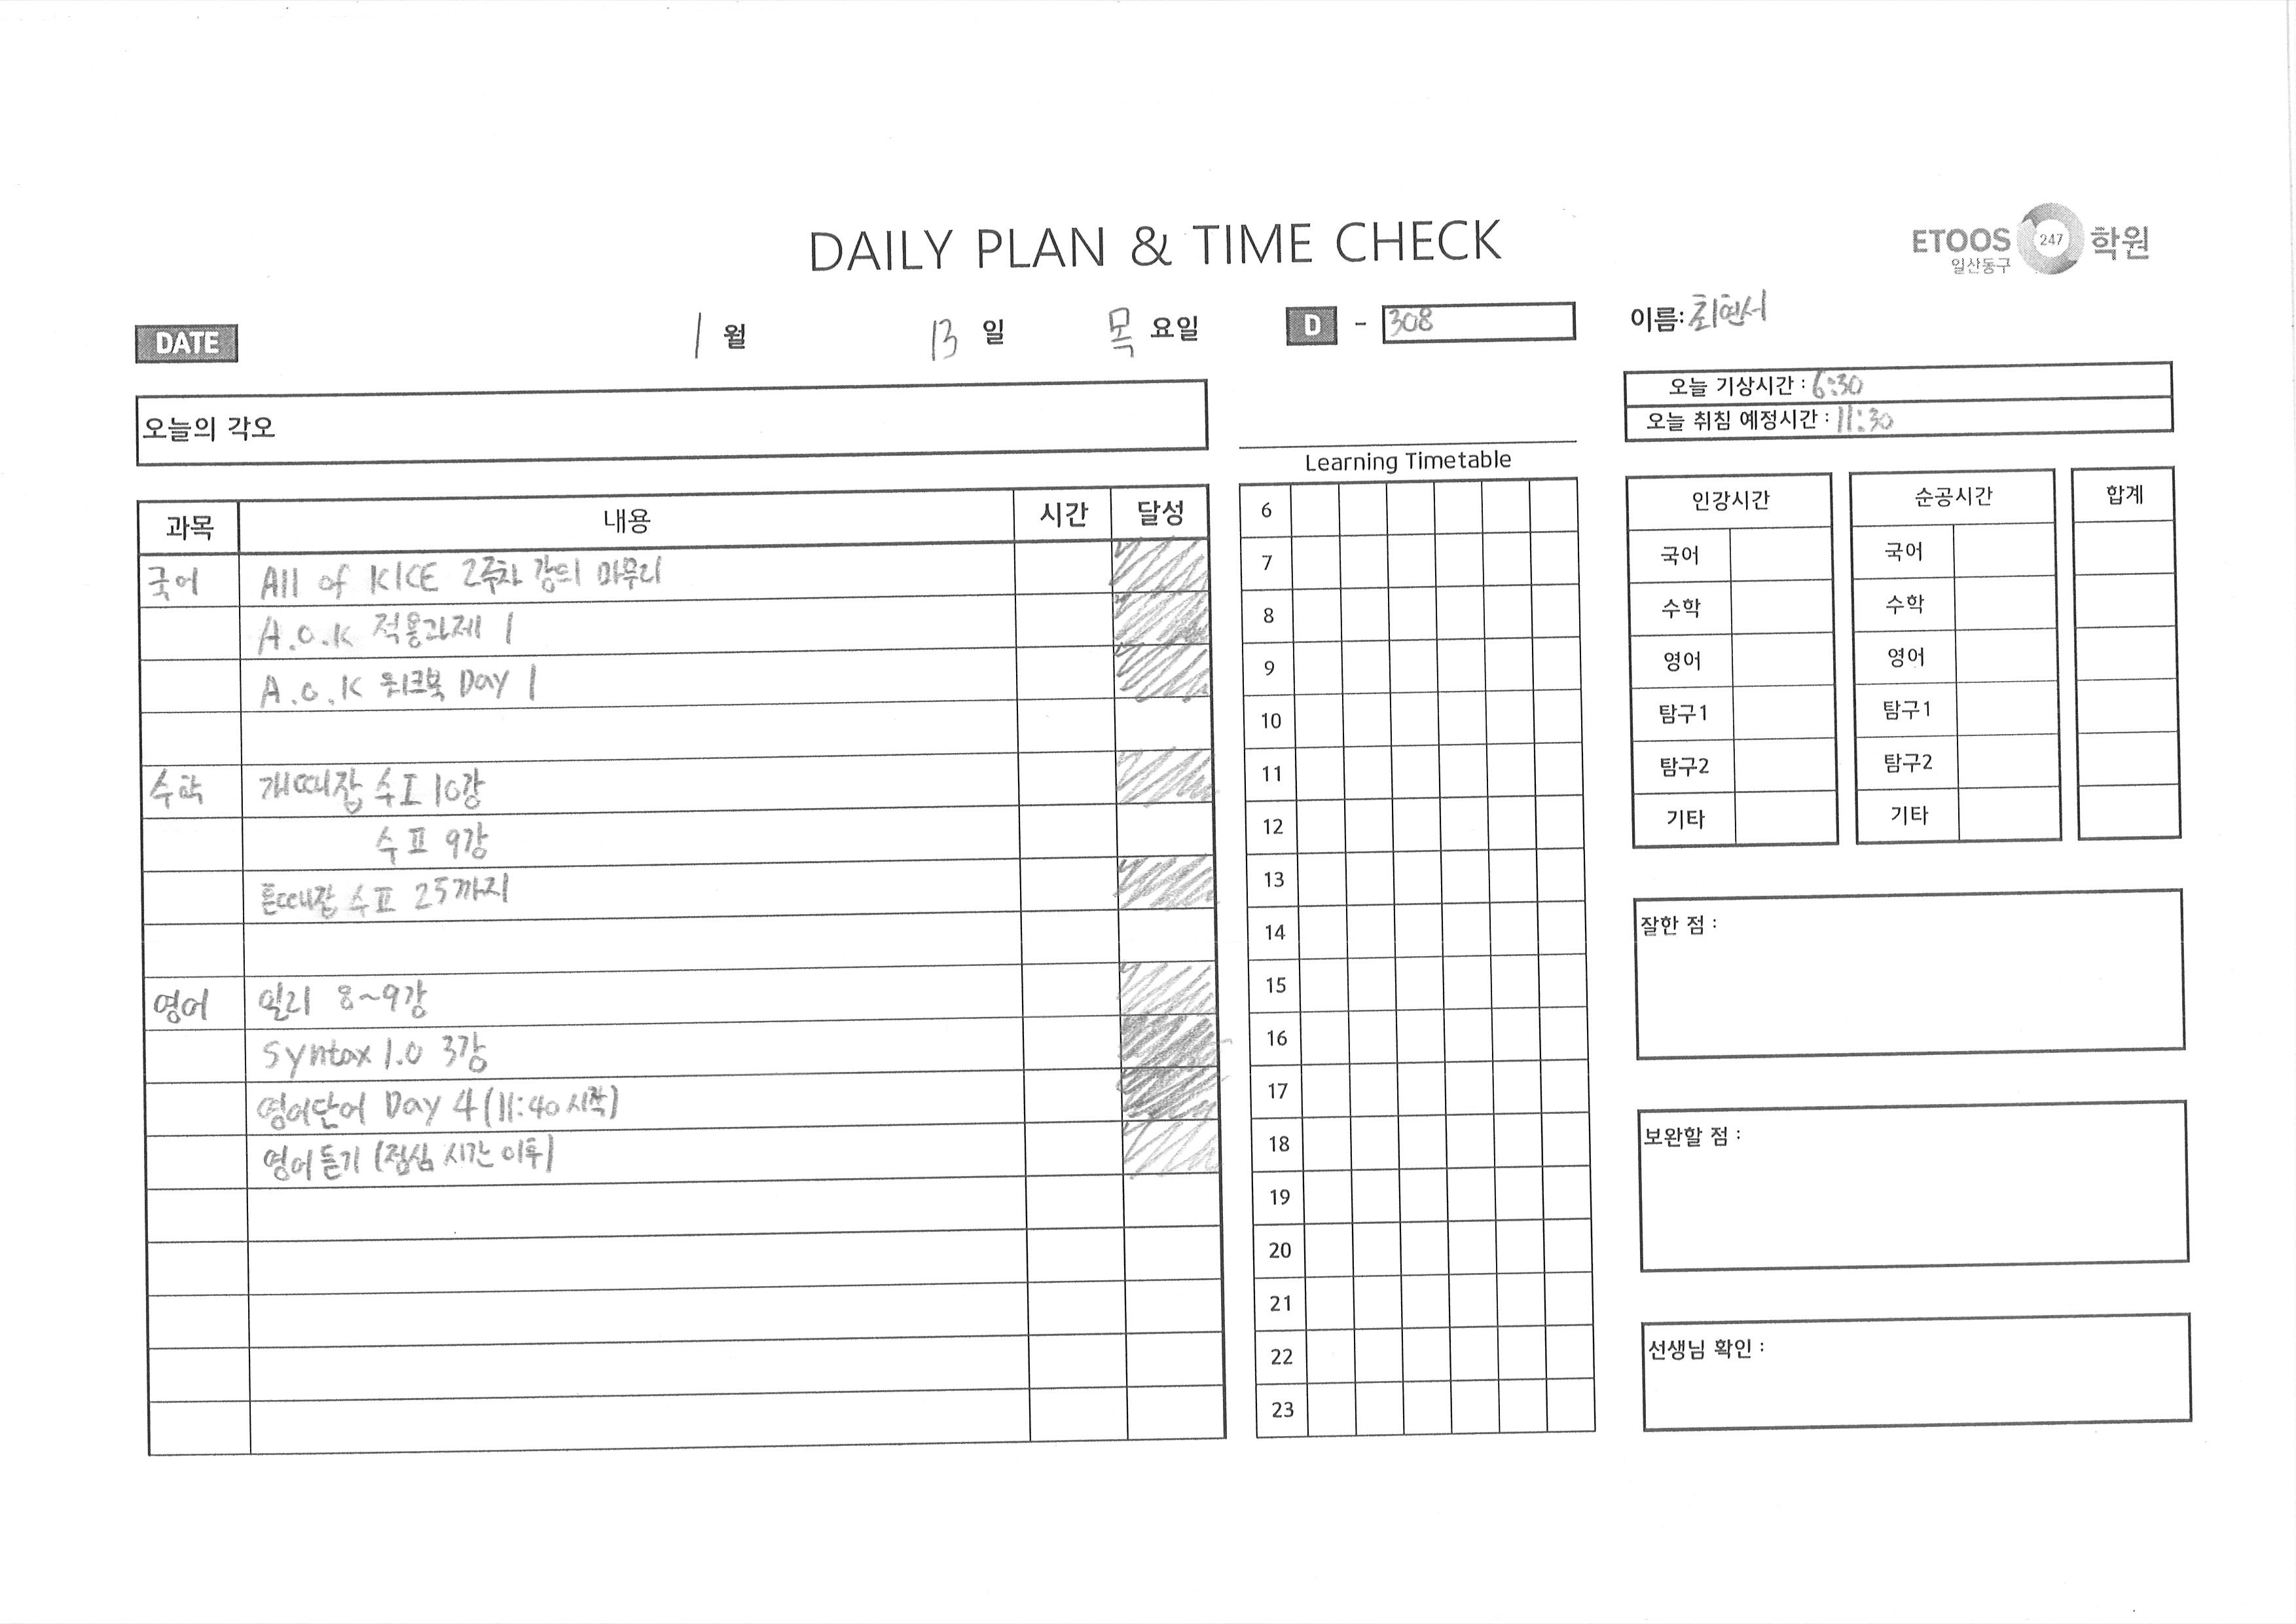 DAILY PLAN & TIME CHECK
ETOOS 247 학원
일산동구
DATE 1 월 13 일 목 요일 D - 308 이름: 최연서
오늘의 각오
오늘 기상시간 : 6:30
오늘 취침 예정시간 : 11:30
과목 내용 시간 달성
국어 All of KICE 2주차 강의 마무리
A.O.K 적용과제 1
A.O.K 워크북 Day 1
수학 개때잡 수I 10강
수II 9강
튼때잡 수II 25까지
영어 일리 8~9강
Syntax 1.0 3강
영어단어 Day 4 (11:40 시작)
영어듣기 (점심 시간 이후)
Learning Timetable
6
7
8
9
10
11
12
13
14
15
16
17
18
19
20
21
22
23
인강시간 순공시간 합계
국어 국어
수학 수학
영어 영어
탐구1 탐구1
탐구2 탐구2
기타 기타
잘한 점 :
보완할 점 :
선생님 확인 :